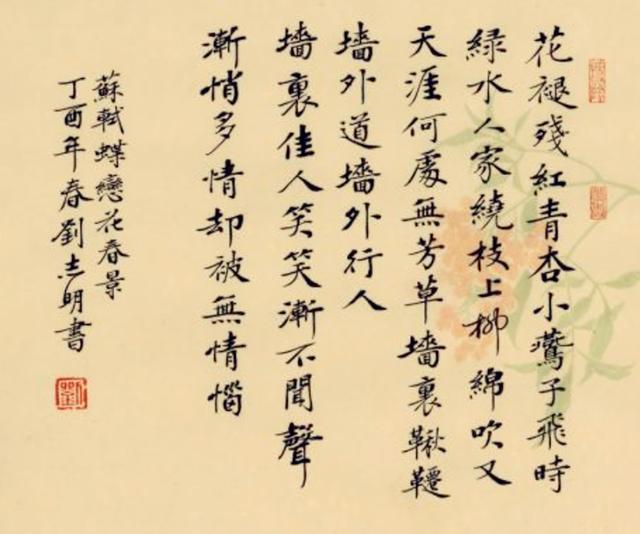 花褪殘紅青杏小鷰子飛時
綠水人家繞枝上柳綿吹又
天涯何處無芳草墻裏鞦韆
墻外道墻外行人
墻裏佳人笑笑漸不聞聲
漸悄多情却被無情惱
蘇軾蝶戀花春景
丁酉年春劉志明書